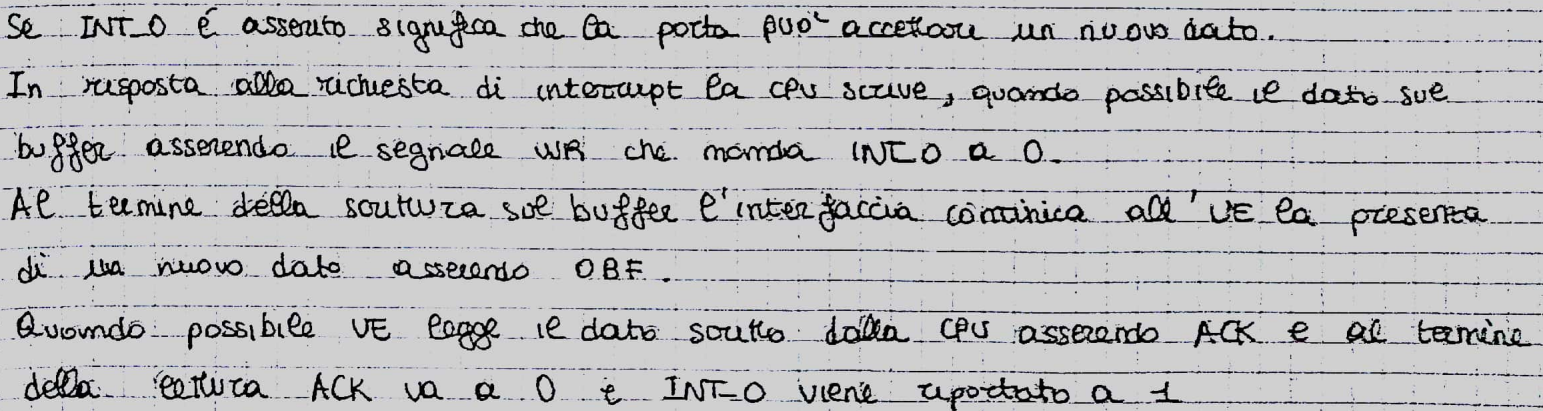 Se INT_O é asserito significa che la porta può accettare un nuovo dato.
In risposta alla richiesta di interrupt la CPU scrive, quando possibile il dato sul
buffer asserendo il segnale WR che manda INT_O a 0.
Al termine della scrittura sul buffer l'interfaccia comunica all'UE la presenza
di un nuovo dato asserendo OBF.
Quando possibile UE legge il dato scritto dalla CPU asserendo ACK e al termine
della lettura ACK va a 0 e INT_O viene riportato a 1